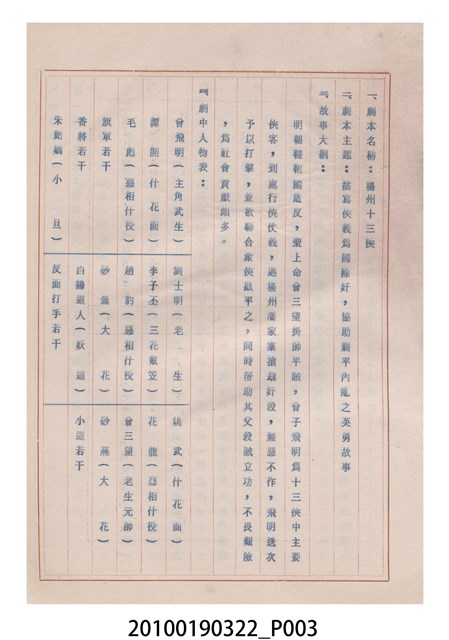 一、劇本名稱：楊州十三俠
二、劇本主題：描寫俠義為國除奸，協助朝平內亂之英勇故事
三、故事大綱：
明朝韃靼國造反，聖上命曾三望掛帥平賊，曾子飛明為十三俠中主要
俠客，到處行俠仗義，遇楊州蕭家寨搶劫奸殺，無惡不作，飛明迭次
予以打擊，並欲聯合眾俠獻平之，同時帮助其父殺賊立功，不畏艱險
，為社會貢獻頗多。
四、劇中人物表：
曾飛明（主角武生） 劉士明（老生） 姚武（什花面）
譚開（什花面） 李子丕（三花戴笠） 花龍（惡相什役）
毛彪（惡相什役） 趙豹（惡相什役） 曾三望（老生元帥）
旗軍若干 砂無（大花） 砂燕（大花）
番將若干 白鶴道人（妖道） 小道若干
朱艷嬌（小旦） 反面打手若干
20100190322_P003